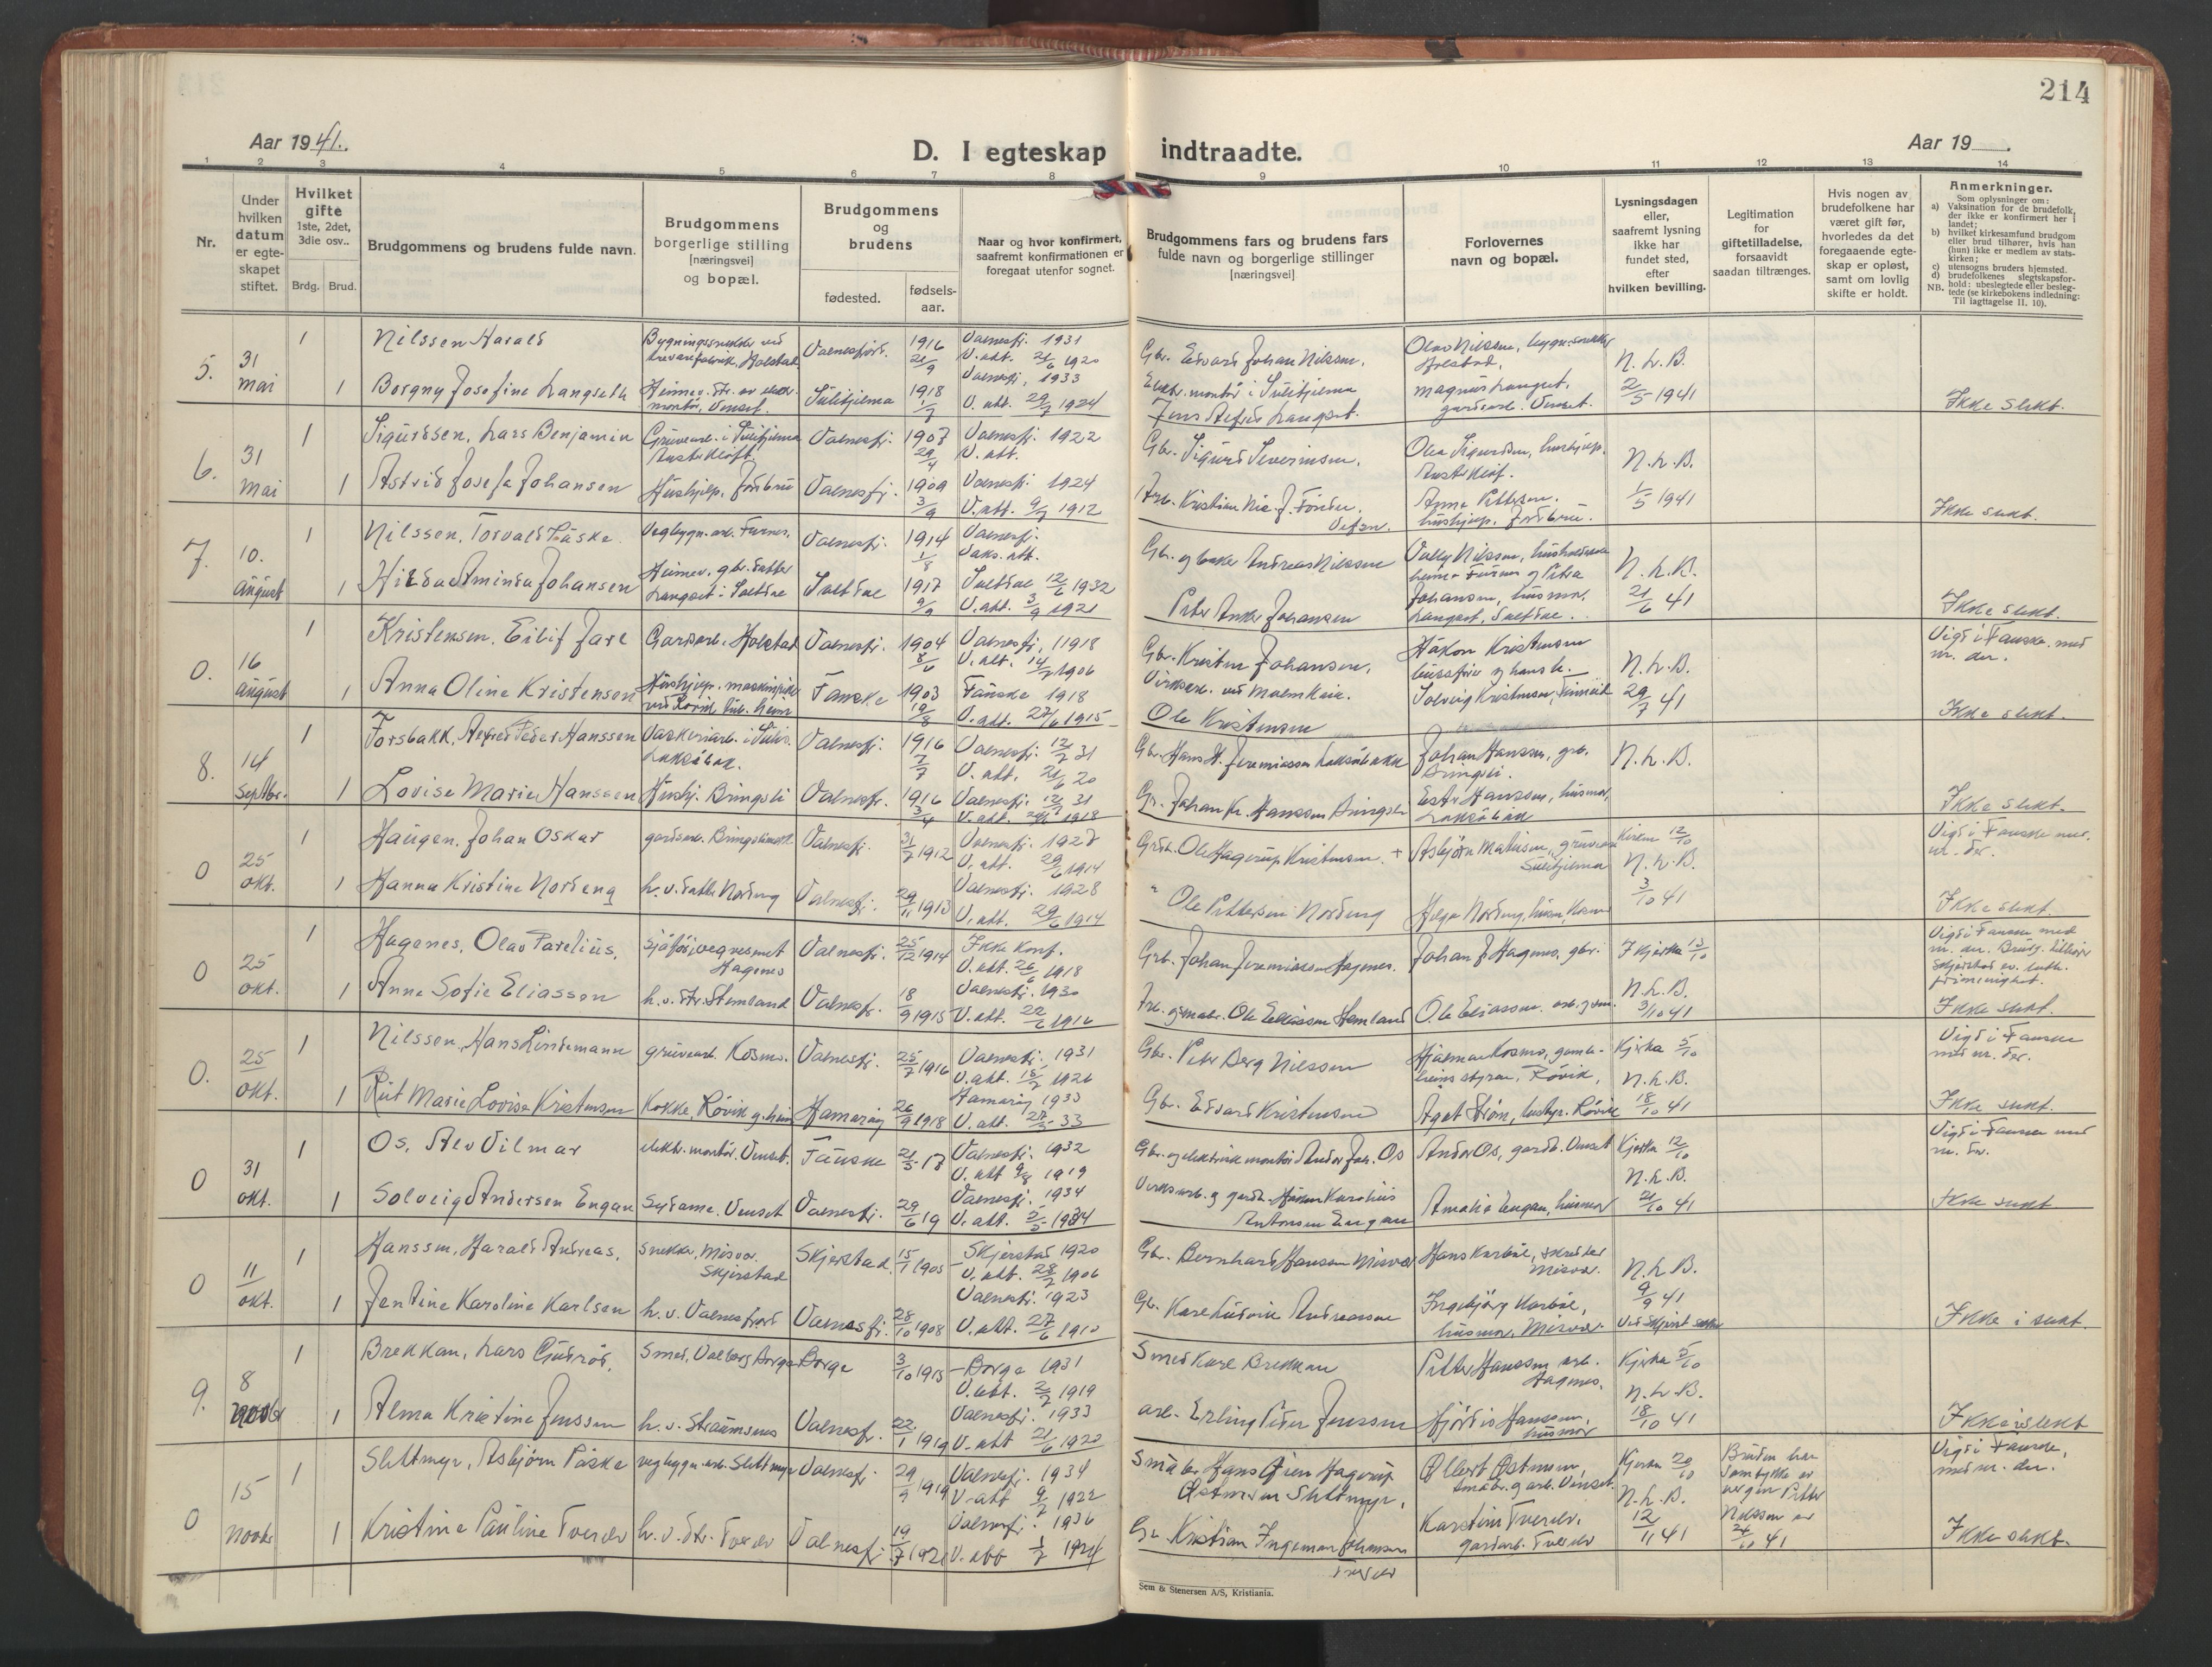 214
Aar 1941.
D. I egteskap indtraadte.
Aar 19
1 2 3 4 5 6 7 8 9 10 11 12 13 14
Nr.
Under hvilken datum er egteskapet stiftet.
Hvilket gifte 1ste, 2det, 3die osv..
Brdg. Brud.
Brudgommens og brudens fulde navn.
Brudgommens borgerlige stilling [næringsvei] og bopæl.
Brudgommens og brudens
fødested.
fødsels-aar.
Naar og hvor konfirmert, saafremt konfirmationen er foregaat utenfor sognet.
Brudgommens fars og brudens fars fulde navn og borgerlige stillinger [næringsvei]
Forlovernes navn og bopæl.
Lysningsdagen eller, saafremt lysning ikke har fundet sted, efter hvilken bevilling.
Legitimation for giftetilladelse, forsaavidt saadan tiltrænges.
Hvis nogen av brudefolkene har været gift før, hvorledes da det foregaaende egteskap er opløst, samt om lovlig skifte er holdt.
Anmerkninger.
Som oplysninger om:
a) Vaksination for de brudefolk, der ikke er konfirmert her i landet;
b) hvilket kirkesamfund brudgom eller brud tilhører, hvis han (hun) ikke er medlem av statskirken;
c) utensogns bruders hjemsted.
d) brudefolkenes slegtskapsforhold: ubeslegtede eller beslegtede (se kirkebokens indledning:
NB. Til iagttagelse II. 10).
5. 31 mai
1 Nilssen Harald
Bygningssnekker ved trevarefabrik, Holstad
Valnesfjord. 1916 21/9
Valnesfj. 1931
V. att. 21/6 1920
Gbr. Edvard Johan Nilssen.
Olav Nilssen, bygn.snekker Holstad.
N.L.B. 2/5 1941
1 Borgny Josefine Langseth
Heimev. dtr. av elektr. montör, Venset.
Sulitjelma 1918 1/7
Valnesfj. 1933
V. att. 29/7 1924
Elektr. montör i Sulitjelma
Jens Alfred Langset.
Magnus Langset, gardsarb. Venset.
Ikke slekt.
6. 31 mai
1 Sigurdsen, Lars Benjamin
Gruvearb. i Sulitjelma
Valnesfj. 1907 29/4
Valnesfj. 1922
V. att.
Gbr. Sigurd Severinsen.
Olea Sigurdsen, hushjelp.
N.L.B. 1/5 1941
1 Astrid Josefa Johansen
Hushjelp, Fordbru
Valnesfj. 1909 3/9
Valnesfj. 1924
V. att. 9/7 1912
Arb. Kristian Nic. J.
Anna Pettersen. hushjelp.
Ikke slekt.
7. 10. august
1 Nilssen, Torvald Påske.
Vegbygn. arb. Furnes.
Valnesfj. 1914 1/8
Valnesfj.
Vaks. att.
Gbr. og baker Andreas Nilssen
Valby Nilssen,
N.L.B. 21/6 41
1 Hilda Aminda Johansen
Heimev. gbr. datter Langset i Saltdal
Saltdal 1917 9/9
Saltdal 12/6 1932
V. att. 3/9 1921
Peter Anker Johansen
Johansen, husmor, Langset, Saltdal.
Ikke slekt.
0. 16 august
1 Kristensen, Eilif Jarl
Gardsarb. Holstad
Valnesfj. 1904 8/6
Valnesfj. 1918
V. att. 14/7 1906
Gbr. Kristen Johansen.
Håkon Kristensen
N.L.B. 29/7 41
Vigd i Fauske med nr. der.
1 Anna Oline Kristensen
Fauske 1903 19/8
Fauske 1918
V. att. 27/6 1915
Ole Kristensen
Solveig Kristensen,
Ikke slekt.
8. 14 Septbr.
1 Forsbakk, Alfred Peder Hanssen
Vaskeriarb. i Sulis. Laksåbak.
Valnesfj. 1916 7/7
Valnesfj. 12/7 31
V. att. 21/6 20
Gbr. Hans H. Jeremiassen Laksåbakk
Johan Hanssen, grb. Bringsli.
N.L.B.
1 Lovise Marie Hanssen
Hushj. Bringsli
Valnesfj. 1916 3/4
Valnesfj. 12/7 31
V. att. 1918
Gbr. Johan Kr. Hanssen Bringsli
Ester Hanssen, husmor, Laksåbak
Ikke slekt.
0 25 okt.
1 Haugen, Johan Oskar
gardsarb. Bringslimark
Valnesfj. 31/7 1912
Valnesfj. 1927
V. att. 29/6 1914
Gbr. Ole Hagerup Kristensen. +
Asbjörn Mathisen, gruvearb Sulitjelma
Kirken 12/10
N.L.B. 3/10 41
Vigd i Fauske med nr. der.
1 Hanna Kristine Nordeng
h.v. datter Nordeng
Valnesfj. 29/11 1913
Valnesfj. 1928
V. att. 29/6 1914
" Ole Pettersen Nordeng
Helga Nordeng, husm, Kosmo
Ikke slekt.
0 25 okt.
1 Hagenes, Olav Parelius,
sjåför, vegvesenet Hagenes
Valnesfj. 25/12 1914
Ikke konf.
V. att. 26/6 1918
Grb. Johan Jeremiassen Hagenes.
Johan J. Hagenes, gbr.
I kjerka 12/10
N.L.B. 3/10 41
Vigd i Fauske med nr. der. Brudg. tilhører Skjerstad ev. luth. frimenighet.
1 Anne Sofie Eliassen
h.v. dtr. Stemland
Valnesfj. 18/9 1915
Valnesfj. 1930
V. att. 22/6 1916
Arb. og småbr. Ole Eliassen Stemland
Ole Eliassen
Ikke slekt.
0. 25 okt.
1 Nilssen, Hans Lindemann
gruvearb. Kosmo.
Valnesfj. 25/7 1916
Valnesfj. 1931
V. att. 15/7 1926
Gbr. Peter Berg Nilssen
Hjalmar Kosmo, gamleheims styrer, Røvik,
Kjerka 5/10
N.L.B. 18/10 41
Vigd i Fauske med nr. der.
1 Rut Marie Lovise Kristensen
Kokke, Røvik g.heim
Hamarøy 26/9 1918
Hamarøy 1933
V. att. 33
Gbr. Edvard Kristensen
Agot Strøm, bestyr. Røvik
Ikke slekt.
0 31 okt.
1 Os, Alv Vilmar
elektr. montör. Venset.
Fauske 21/5 17
Valnesfj. 1932
V. att 9/8 1919
Gbr. og elektrisk montör Andor Joh. Os
Andor Os, gardb. Venset
Kjerka 12/10
N.L.B. 21/10 41
Vigd i Fauske med nr. der.
1 Solveig Andersen Engan
Sydame. Venset
Valnesfj. 29/6 19
Valnesfj. 1934
V. att. 1934
Verksarb. og gardb. Håkon Karelius Antonsen Engan
Amalie Engan, husmor
Ikke slekt
0 11 okt.
1 Hanssen, Harald Andreas.
Snekker, Misvær. Skjerstad
Skjerstad. 15/1 1905
Skjerstad 1920
V. att. 28/7 1906
Gbr. Bernhard Hanssen Misvær
Hans Karbøl, skredder Misvær.
N.L.B. 9/9 41
1 Jentine Karoline Karlsen
h.v. Valnesfjord
Valnesfj. 28/10 1908
Valnesfj. 1923
V. att. 27/6 1910
Gbr. Karl Ludvik Andreassen
Ingebjörg Karbøl, husmor, Misvær.
Ikke i slekt.
9. 8 novbr
1 Brekkan, Lars Gudrød.
Smed, Valberg Borge
Borge 3/10 1915
Borge 1931
V. att. 2/7 1919
Smed Karl Brekkan
Petter Hanssen arb. Hagenes.
Kjerka 5/10
N.L.B. 18/10 41
1 Alma Kristine Jenssen
h.v. Straumsnes
Valnesfj. 22/1 1919
Valnesfj. 1933
V. att 21/6 1920
arb. Erling Peder Jenssen
Hjördis Hanssen, husmor
Ikke i slekt
0 15 Novbr
1 Slettmyr, Asbjørn Påske
vegbygn. arb. Slettmyr
Valnesfj. 29/9 1919
Valnesfj. 1934
V. att 9/7 1922
Småbr. Hans Hagerup Østensen Slettmyr,
Albert Østensen, småbr. g arb. Venset
Kjerka 20/10
N.L.B. 12/11 41
Bruden har samtykke av vergen Petter Nilssen av 24/10 41
Vigd i Fauske, med nr. der.
1 Kristine Pauline Tverelv
h.v. dtr. Tverelv
Valnesfj. 19/7 1921
Valnesfj. 1936
V. att 1/7 1924
Gbr. Kristian Ingemar Johansen Tverelv
Karstein Tverelv, gardarb. Tverelv
Ikke slekt.
Sem & Stenersen A/S, Kristiania.